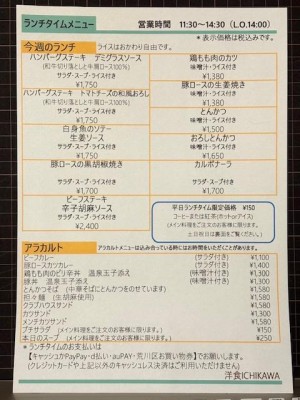 ランチタイムメニュー
営業時間 11:30～14:30 (L.O.14:00)
＊表示価格は税込みです。
今週のランチ ライスはおかわり自由です。
ハンバーグステーキ デミグラスソース
(和牛切り落としと牛肩ロース100%)
サラダ・スープ・ライス付き
¥1,500
ハンバーグステーキ トマトチーズの和風おろし
(和牛切り落としと牛肩ロース100%)
サラダ・スープ・ライス付き
¥1,700
白身魚のソテー
生姜ソース
サラダ・スープ・ライス付き
¥1,750
豚ロースの黒胡椒焼き
サラダ・スープ・ライス付き
¥1,700
ビーフステーキ
辛子胡麻ソース
サラダ・スープ・ライス付き
¥2,400
鶏もも肉のカツ
味噌汁・ライス付き
¥1,380
豚ロースの生姜焼き
味噌汁・ライス付き
¥1,380
とんかつ
味噌汁・ライス付き
¥1,500
おろしとんかつ
味噌汁・ライス付き
¥1,650
カルボナーラ
サラダ・スープ付き
¥1,750
平日ランチタイム限定価格 ¥150
コーヒーまたは紅茶(ホットorアイス)
(メイン料理をご注文のお客様に限ります。)
アラカルト アラカルトメニューは込み合っている時にはお時間をいただくことがあります。
ビーフカレー (サラダ付き) ¥1,100
豚ロースカツカレー (サラダ付き) ¥1,400
鶏もも肉のピリ辛丼 温泉玉子添え (味噌汁付き) ¥1,300
豚丼 温泉玉子添え (味噌汁付き) ¥1,300
とんかつそば (中華そばにとんかつをのせています) ¥1,580
担々麺 (生胡麻使用) ¥1,580
クラブハウスサンド ¥1,580
カツサンド ¥1,300
メンチカツサンド ¥1,580
プチサラダ (メイン料理をご注文のお客様に限ります。) ¥150
本日のスープ (メイン料理をご注文のお客様に限ります。) ¥250
＊ランチタイムのお支払いは
【キャッシュかPayPay・d払い・auPAY・荒川区お買い物券】でお願いします。
(クレジットカードや上記以外のキャッシュレス決済はご利用いただけません)
洋食ICHIKAWA